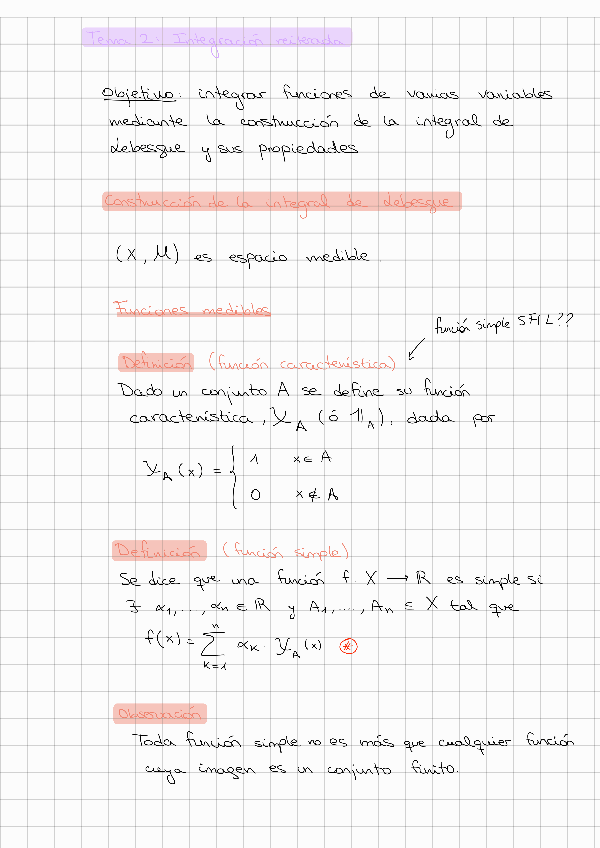 Tema 2: Integración reiterada
Objetivo: integrar funciones de varias variables
mediante la construcción de la integral de
Lebesgue y sus propiedades
Construcción de la integral de Lebesgue
(X, M) es espacio medible.
Funciones medibles
función simple SFIL??
Definición (función característica)
Dado un conjunto A se define su función
característica, χ_A (ó 𝟙_A), dada por
χ_A(x) = { 1 x ∈ A
0 x ∉ A
Definición (función simple)
Se dice que una función f: X → ℝ es simple si
∃ α1, ..., αn ∈ ℝ y A1, ..., An ⊆ X tal que
f(x) = Σ_{k=1}^{n} αk · χ_A(x) (*)
Observación
Toda función simple no es más que cualquier función
cuya imagen es un conjunto finito.